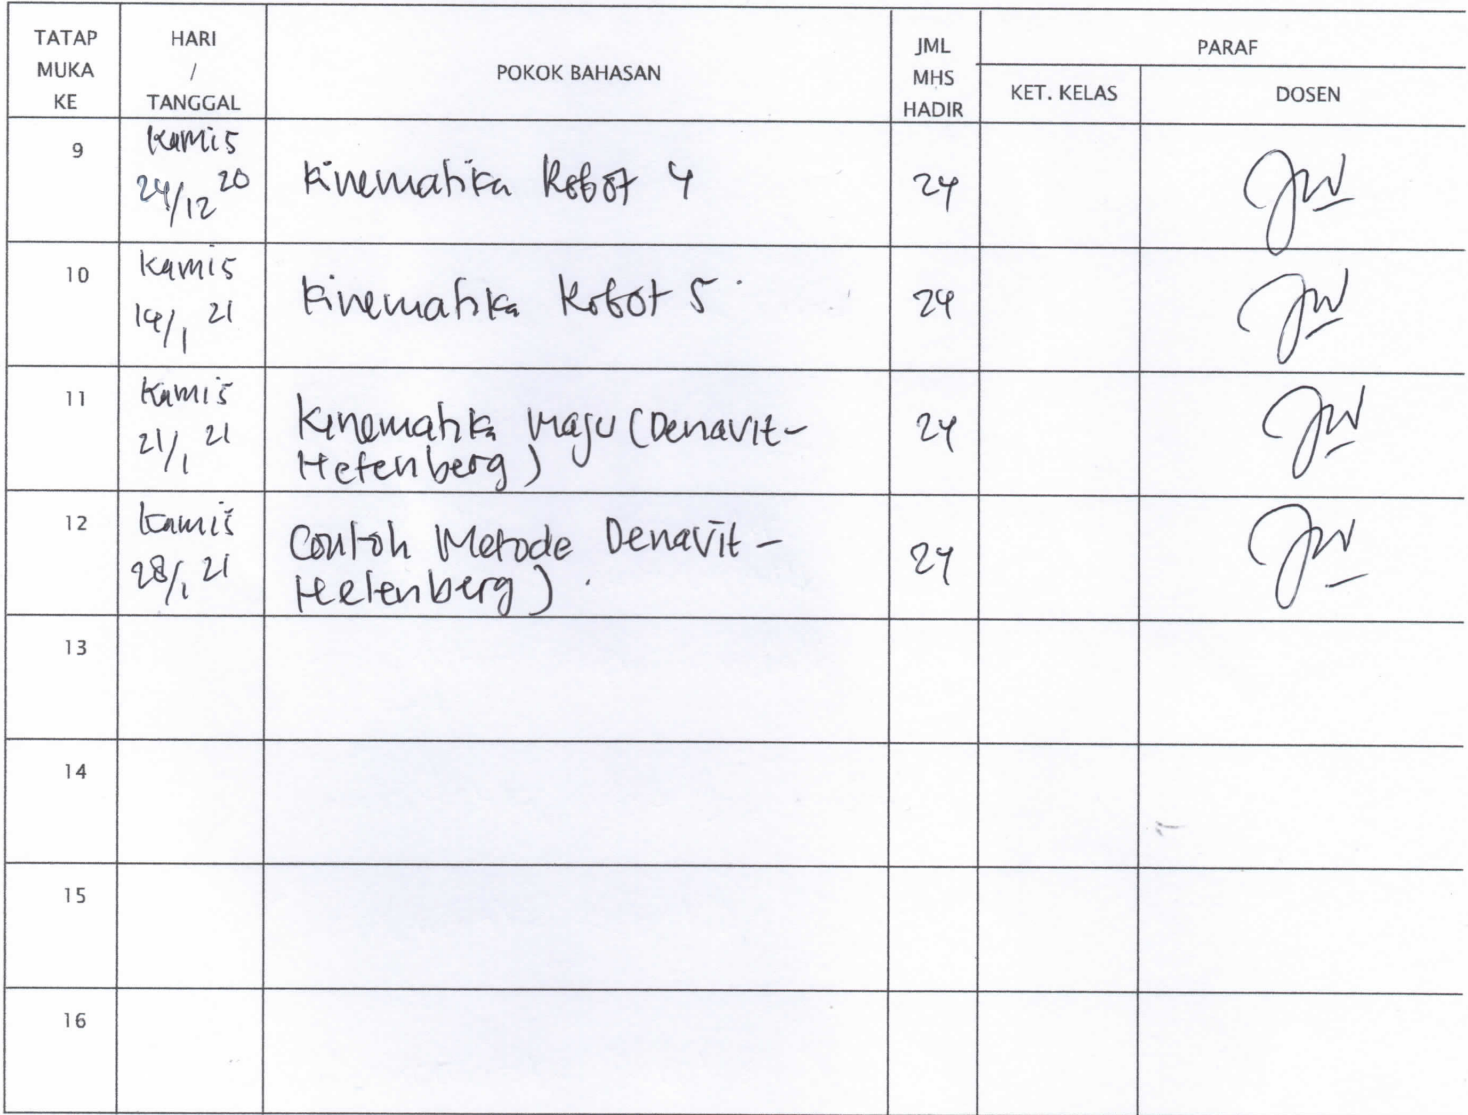 TATAP MUKA KE HARI / TANGGAL POKOK BAHASAN JML MHS HADIR PARAF
KET. KELAS DOSEN
9 Kamis 24/12 20 Kinematika Robot 4 24
10 Kamis 14/1 21 Kinematika Robot 5 24
11 Kamis 21/1 21 Kinematika Maju (Denavit-
Hetenberg) 24
12 Kamis 28/1 21 Contoh Metode Denavit-
Hetenberg) 24
13
14
15
16